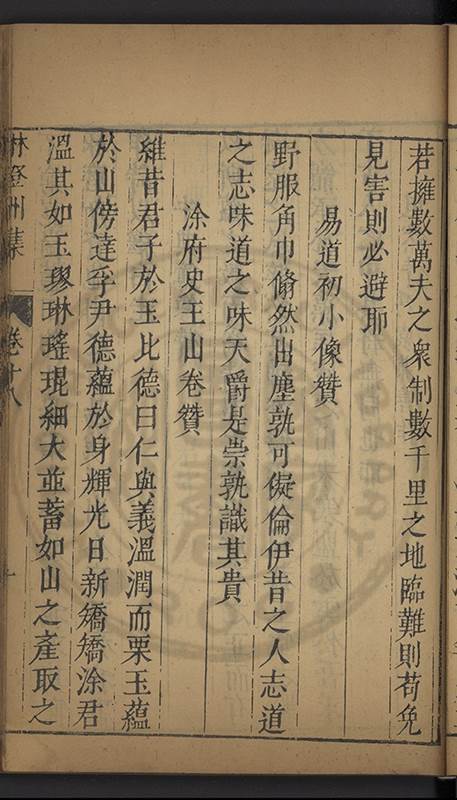 若擁數萬夫之衆制數千里之地臨難則苟免
見害則必避耶
易道初小像贊
野服角巾翛然出塵孰可儗倫伊昔之人志道
之志味道之味天爵是崇孰識其貴
涂府史玉山卷贊
維昔君子於玉比德曰仁與義溫潤而栗玉蘊
於山傍達孚尹德蘊於身輝光日新矯矯涂君
溫其如玉璆琳瑤琨細大並蓄如山之產取之
林登州集
卷十八